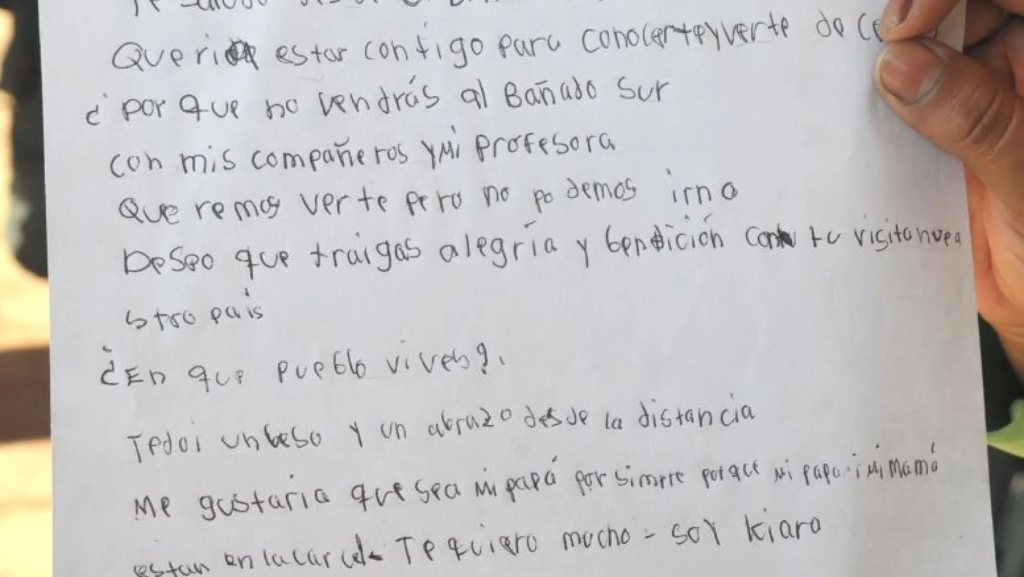 Te saludo desde
Queria estar contigo para conocerteyverte de ce
¿por que no vendrás al Bañado Sur
con mis compañeros y mi profesora
Queremos verte pero no podemos irno
Deseo que traigas alegría y bendición con tu visitanuea
stro pais
¿En que pueblo vives?.
Tedoi unbeso y un abrazo desde la distancia
Me gustaria que sea mi papá por simpre porque mi papa i mi mamá
estan en lacarcel Te quiero mucho - soy kiara